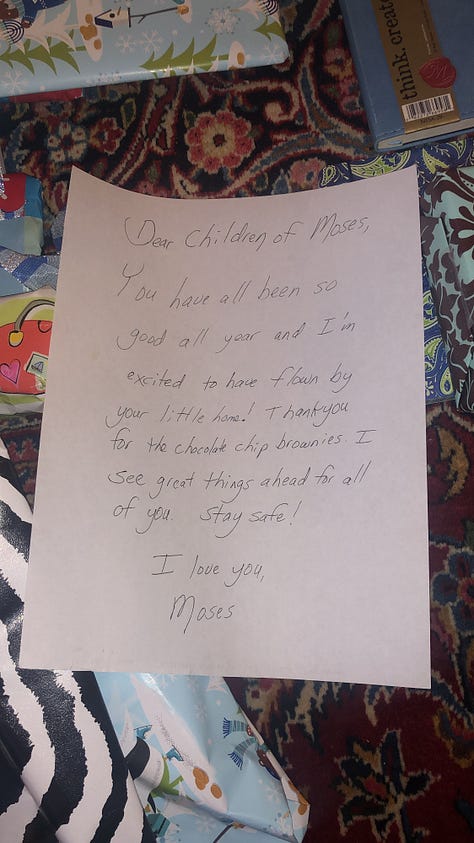 think. create
Dear Children of Moses,
You have all been so
good all year and I'm
excited to have flown by
your little home! Thankyou
for the chocolate chip brownies. I
see great things ahead for all
of you. Stay safe!
I love you,
Moses